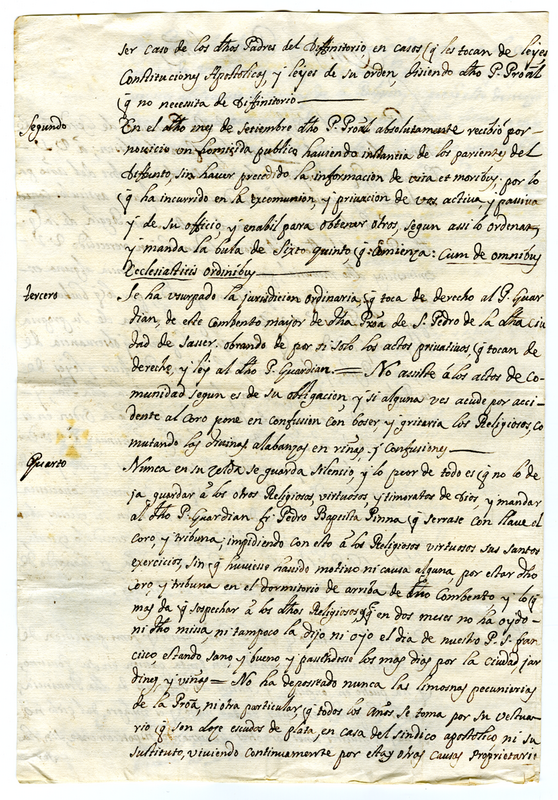 ser caso de los dhos Padres del diffinitorio en casos (q̃ les tocan de leyes
Constituciones Apostolicas, y leyes de su orden, diciendo dho P. Proãl
q̃ no necesita de diffinitorio
Segundo
En el dho mes de Setiembre dho P. Proãl absolutamente recibió por
novicio un homicida publico haviendo instancia de los parientes del
diffunto, sin haver precedido la informacion de vita et moribus, por lo
q̃ ha incurrido en la excomunion, y privacion de vos, activa, y passiva
y de su officio, y enabil para obtener otros, segun assi lo ordena,
y manda la bula de Sixto quinto (q̃ comienza: Cum de omnibus
Ecclesiasticis ordinibus
tercero
Se ha vsurpado la jurisdicion ordinaria, q̃ toca de derecho al P. Guar
dian, de este Combento mayor de dha Proã de S. Pedro de la dha Ciu
dad de Sacer. obrando de por si solo los actos privativos, (q̃ tocan de
derecho, y ley al dho P. Guardian. = No assiste á los actos de co-
munidad segun es de su obligacion, y si alguna ves acude por acci
dente al Coro pone en confusion con boses y griteria los Religiosos, co
mutando las divinas alabanzas en riñas, y confusiones
Quarto
Nunca en su Celda se guarda silensio, y lo peor de todo es (q̃ no lo de
ja guardar á los otros Religiosos virtuosos, y timoratos de Dios y mandar
al dho P. Guardian fr Pedro Baptista Pinna (q̃ serrase con llave el
Coro, y tribuna, impidiendo con esto á los Religiosos virtuosos sus santos
exercicios, sin q̃ huviese havido motivo ni causa alguna, por estar dho
Coro, y tribuna en el dormitorio de arriba de dho Combento y lo q̃
mas da q̃ sospechar á los dhos Religiosos, q̃ en dos meses no ha oydo
ni dho missa ni tampoco la dijo ni oyo el dia de nuestro P. S. fran
cisco estando sano y bueno, y passeandose los mas dias por la ciudad, jar
dines y viñas = No ha depositado nunca las limosnas pecuniarias
de la Proã, ni otra particular, q̃ todos los años se toma por su vestua
rio q̃ son dose escudos de plata, en casa del sindico apostolico ni su
sustituto, viviendo continuamente por estas y otras causas Proprietario